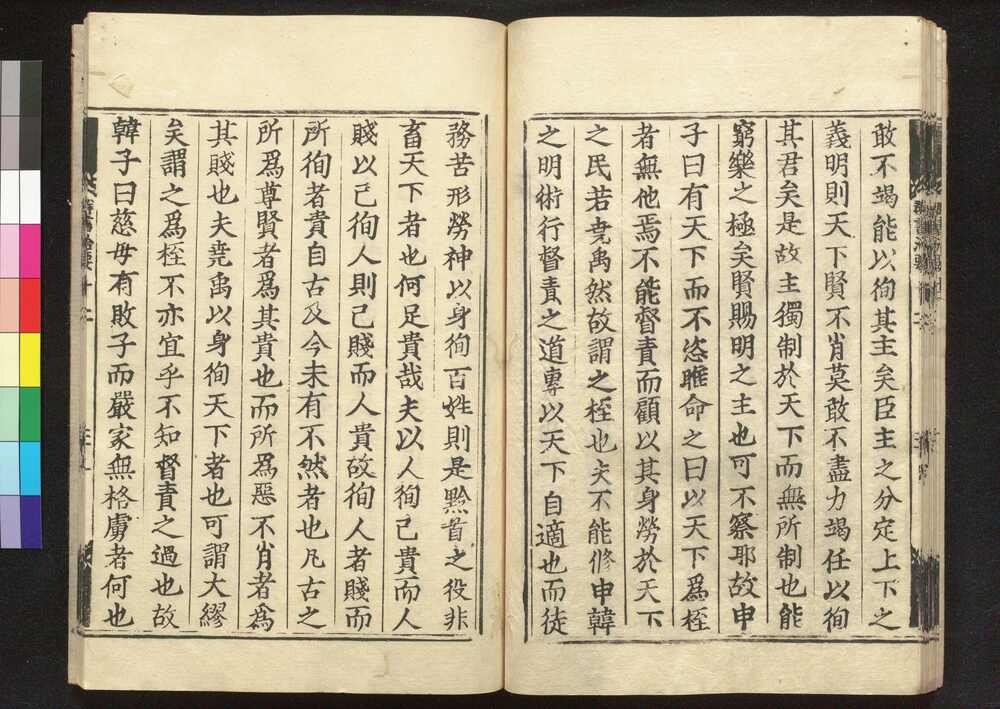 敢不竭能以徇其主矣臣主之分定上下之
義明則天下賢不肖莫敢不盡力竭任以徇
其君矣是故主獨制於天下而無所制也能
窮樂之極矣賢賜明之主也可不察耶故申
子曰有天下而不恣睢命之曰以天下爲桎
者無他焉不能督責而顧以其身勞於天下
之民若尭禹然故謂之桎也夫不能修申韓
之明術行督責之道專以天下自適也而徒
務苦形勞神以身徇百姓則是黔首之役非
畜天下者也何足貴哉夫以人徇己貴而人
賤以己徇人則己賤而人貴故徇人者賤而
所徇者貴自古及今未有不然者也凡古之
所爲尊賢者爲其貴也而所爲惡不肖者爲
其賤也夫堯禹以身徇天下者也可謂大繆
矣謂之爲桎不亦宜乎不知督責之過也故
韓子曰慈毋有敗子而嚴家無格虜者何也